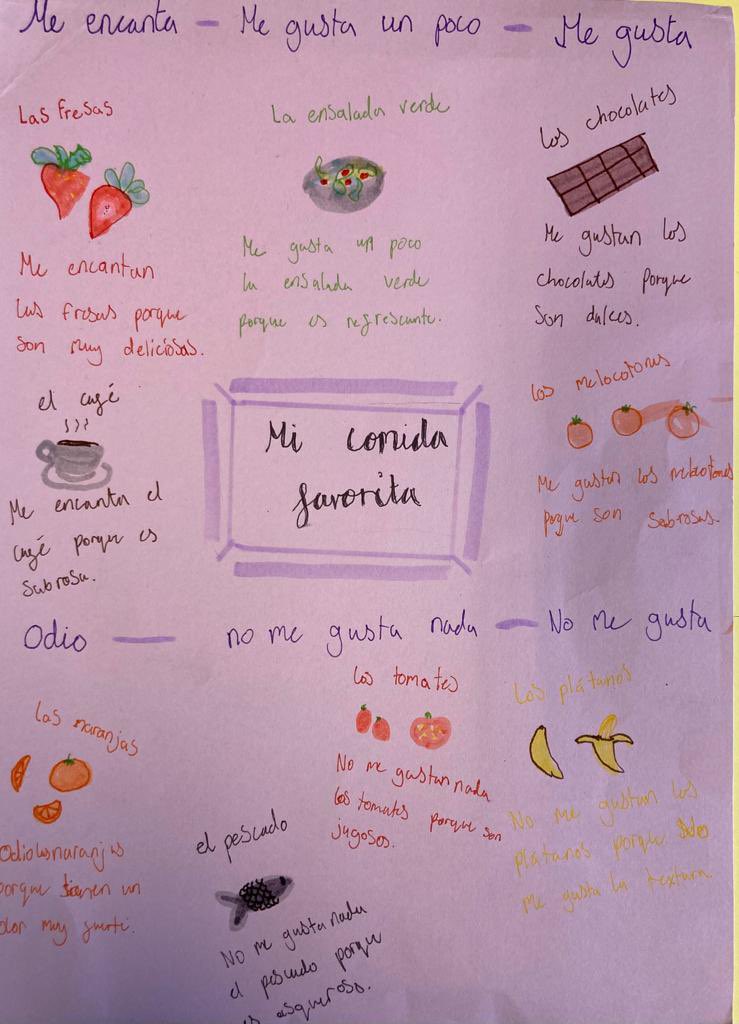 Me encanta – Me gusta un poco – Me gusta
Las fresas
Me encantan
las fresas porque
son muy deliciosas.
La ensalada verde
Me gusta un poco
la ensalada verde
porque es refrescante.
Los chocolates
Me gustan los
chocolates porque
son dulces.
el café
Me encanta el
café porque es
sabrosa.
Mi comida
favorita
Los melocotones
Me gustan los melocotones
porque son sabrosas.
Odio — no me gusta nada — No me gusta
Las naranjas
Odio las naranjas
porque tienen un
olor muy fuerte.
el pescado
No me gusta nada
el pescado porque
es asqueroso.
Los tomates
No me gustan nada
los tomates porque son
jugosos.
Los plátanos
No me gustan los
plátanos porque
me gusta la textura.